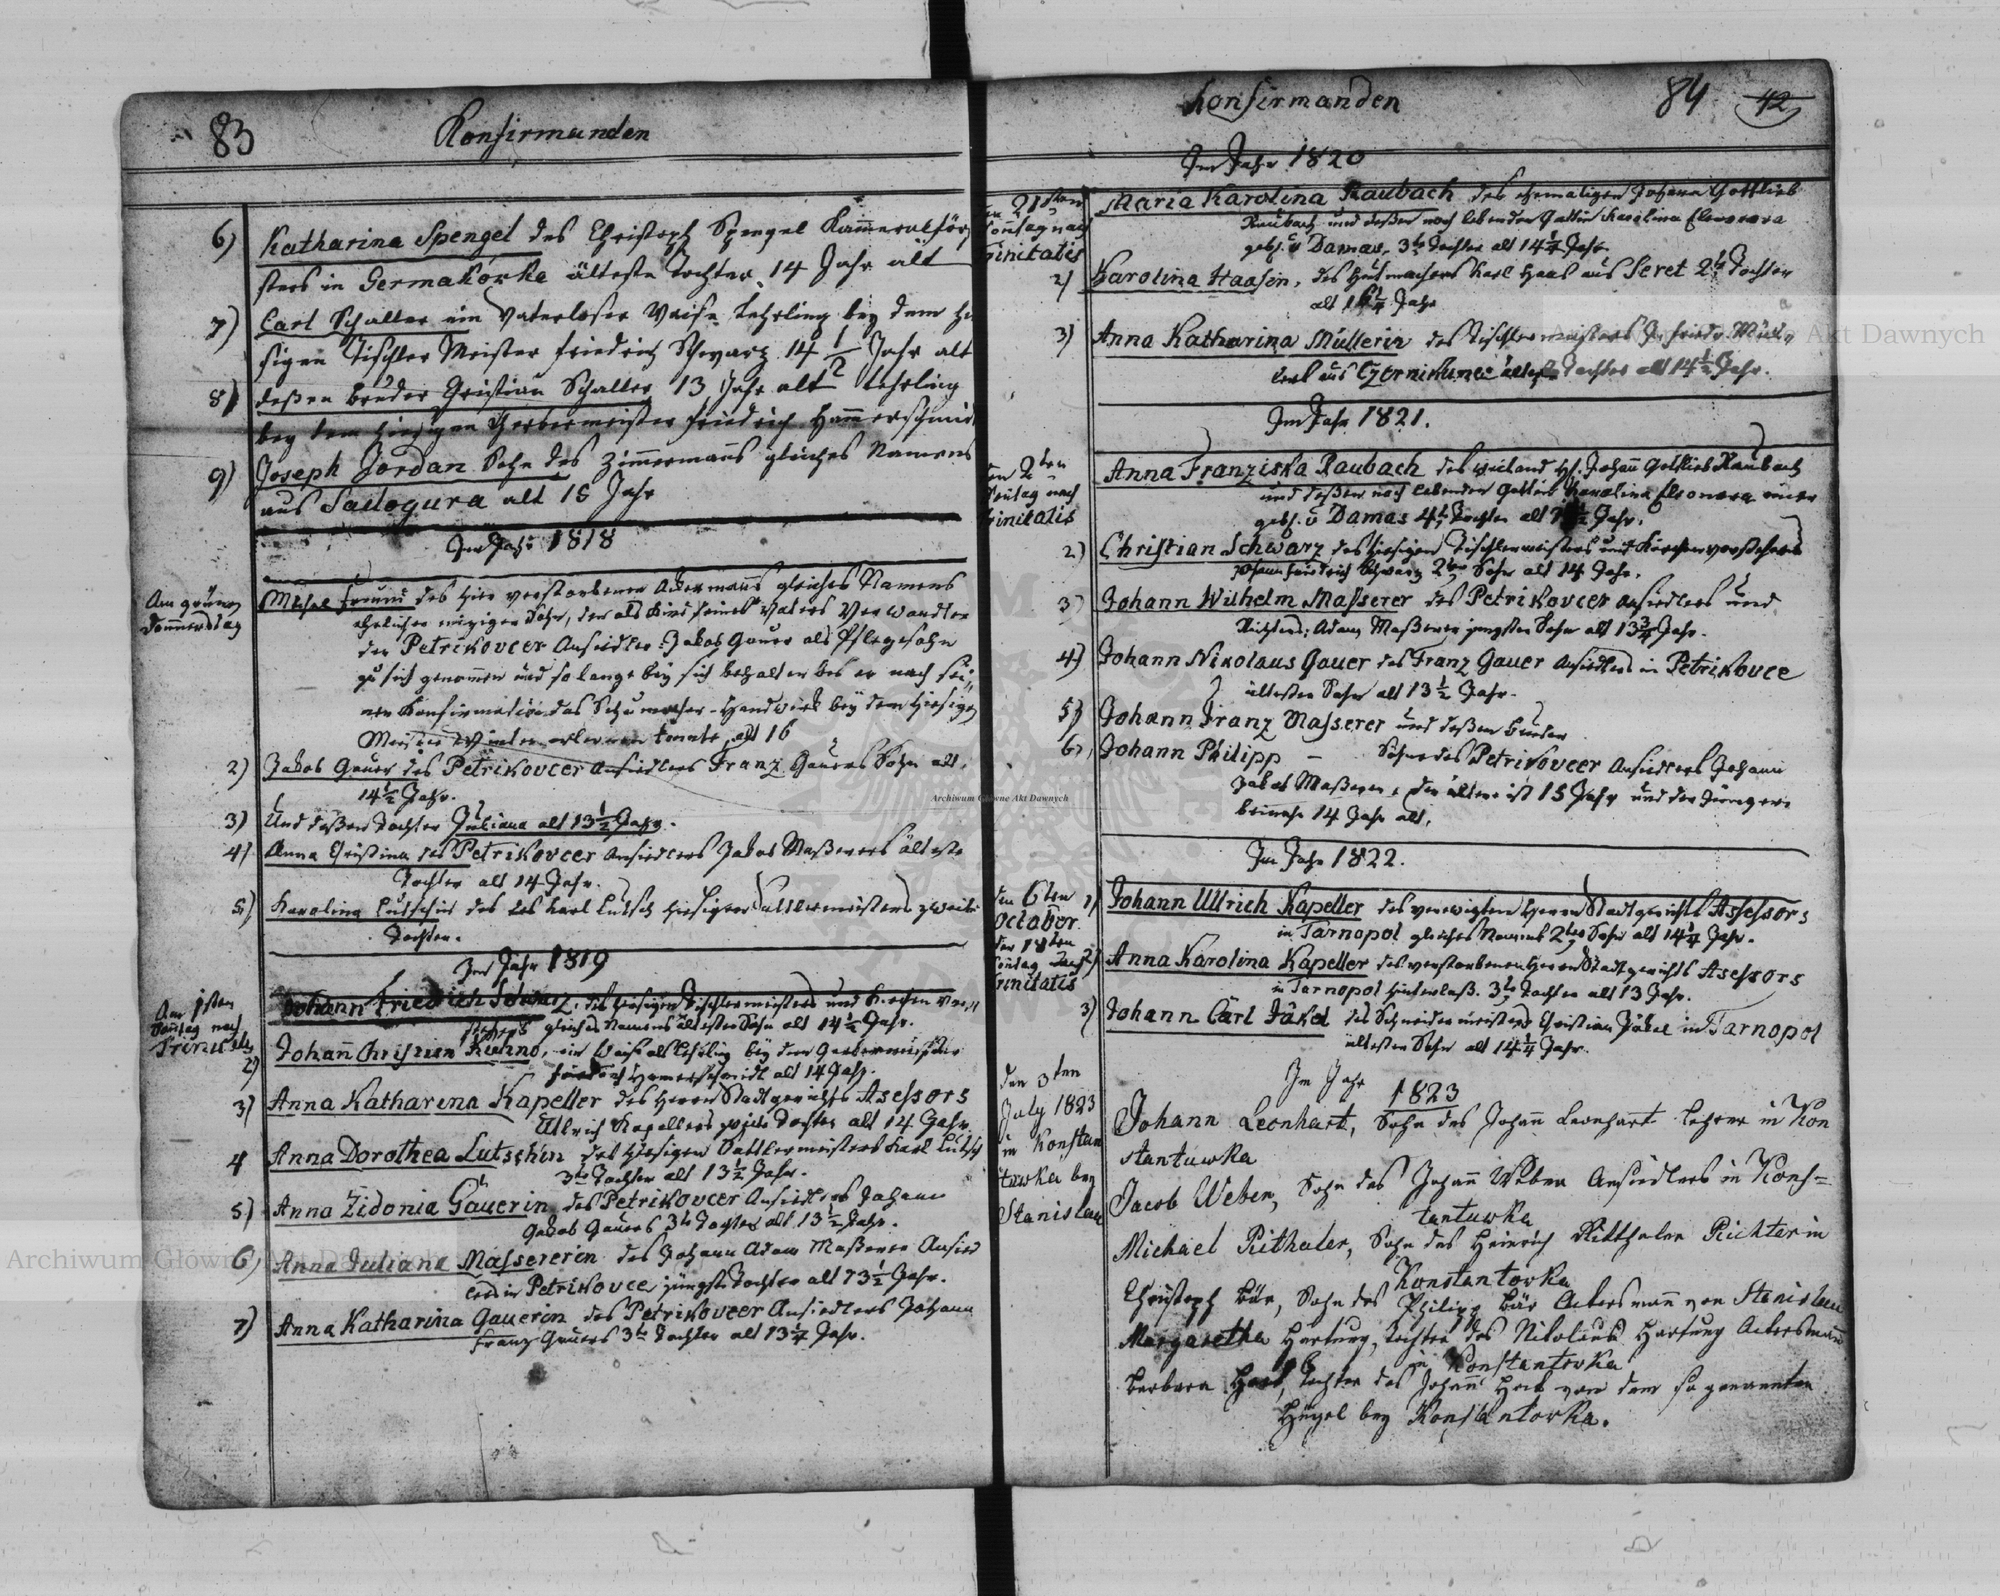 83
Konfirmanden
6) Katharina Spengel des Christoph Spengel Kam̄eralförs
sters in Germakowka älteste Tochter, 14 Jahr alt
7) Carl Schaller ein Vaterloser Waise Lehrling bey dem hi
sigen Tischler Meister Friedrich Schwarz 14 1/2 Jahr alt
8) deßen Bruder Christian Schaller 13 Jahr alt Lehrling
bey dem hiesigen Gerbermeister Friedrich Ham̄erschmid
9) Joseph Jordan Sohn des Zimmermanns gleiches Namens
aus Sadogura alt 15 Jahr
Im Jahr 1818
Am grünen
Donnerstag
des hier verstorbenen Ackermanns gleiches Namens
ehelicher einziger Sohn, den als Kind seines Vaters Verwandter
der Petrikovcer Ansiedler Jakob Gauer als Pflegesohn
zu sich genom̄en und so lange bey sich behalten bis er nach sei=
ner Konfirmation das Schumacher-Handwerk bey dem hiesigen
Meister erlernen konnte, alt 16
2) Jakob Gauer des Petrikovcer Ansiedlers Franz Gauers Sohn alt
14 1/2 Jahr.
3) Und deßen Tochter Juliana alt 13 1/2 Jahr.
4) Anna Christina des Petrikovcer Ansiedlers Jakob Maßerers älteste
Tochter alt 14 Jahr.
5) Karolina Lutschin des Karl Lutsch hiesigen Sattlermeisters zweite
Tochter.
Im Jahr 1819
Am 1sten
Sontag nach
Trinitatis
Johann Friedrich Schwarz, des hiesigen Tischlermeisters und Kirchen vor
stehers gleiches Namens ältester Sohn alt 14 1/2 Jahr.
2) Johan̄ Christian Kuhno, ein Waise als Lehrling bey dem Gerbermeister
Friedrich Hamerschmidt alt 14 Jahr.
3) Anna Katharina Kapeller des Herrn Stadtgerichts Assessors
Ullrich Kapellers Tochter alt 14 Jahr.
4 Anna Dorothea Lutschin des hiesigen Sattlermeisters Karl Lutsch
3te Tochter alt 13 1/2 Jahr.
5) Anna Zidonia Gauerin des Petrikovcer Ansiedlers Johann
Jakob Gauers 3te Tochter alt 13 1/2 Jahr.
6) Anna Juliana Massererin des Johann Adam Maßerer Ansied
lers in Petrikovce jüngste Tochter alt 13 1/2 Jahr.
7) Anna Katharina Gauerin des Petrikovcer Ansiedlers Johann
Franz Gauers 3te Tochter alt 13 1/4 Jahr.
Konfirmanden
84
42
Im Jahr 1820
21sten
Sontag nach
Trinitatis
Maria Karolina Raubach des ehemaligen Johann Gottlieb
Raubach und deßen noch lebenden Gattin Karolina Eleonora
geb. v Damas, 3te Tochter alt 14 1/4 Jahr.
2) Karolina Haasin, des Hutmachers Karl Haas aus Seret 2te Tochter
alt 14 1/4 Jahr
3) Anna Katharina Müllerin des Tischlermeisters Müll
lers aus Czernikunce älteste Tochter alt 14 1/2 Jahr.
Im Jahr 1821.
den 2ten
Sontag nach
Trinitatis
Anna Franziska Raubach des weiland H. Johann Gottlieb Raubach
und deßen noch lebenden Gattin Karolina Eleonora einer
geb. v Damas 4te Tochter alt Jahr.
2) Christian Schwarz des hiesigen Tischlermeisters und Kirchenvorstehers
Johann Friedrich Schwarz 2ter Sohn alt 14 Jahr.
3) Johann Wilhelm Masserer des Petrikovcer Ansiedlers und
Richters Adam Maßerer jüngster Sohn alt 13 3/4 Jahr.
4) Johann Nikolaus Gauer des Franz Gauer Ansiedlers in Petrikovce
ältester Sohn alt 13 1/2 Jahr.
5) Johann Franz Masserer und deßen Bruder
6) Johann Philipp — Söhne des Petrikovcer Ansiedlers Johann
Jakob Maßerer, der ältere ist 15 Jahr und der Jüngere
beinahe 14 Jahr alt.
Im Jahr 1822.
den 6ten
October.
der 18ten
Sontag nach
Trinitatis
1) Johann Ullrich Kapeller des verewigten Herrn Stadtgerichts Assessors
in Tarnopol gleiches Namens 2ter Sohn alt 14 1/4 Jahr.
2) Anna Karolina Kapeller des verstorbenen Herrn Stadtgerichts Assessors
in Tarnopol hinterlaß. 3te Tochter alt 13 Jahr.
3) Johann Carl Jäkel des Schneidermeisters Christian Jäkel in Tarnopol
ältester Sohn alt 14 1/4 Jahr.
Im Jahr 1823
den 3ten
July 1823
in Konstan
tuwka bey
Stanislau
Johann Leonhart, Sohn des Johann Leonhart Lehrer in Kon
stantuwka
Jacob Weber, Sohn des Johann Weber Ansiedlers in Kons=
tantuwka
Michael Rithaler, Sohn des Heinrich Ritthaler Richter in
Konstantovka
Christoph Bär, Sohn des Philipp Bär Ackersmann von Stanislau
Margaretha Hartung, Tochter des Nikolaus Hartung Ackersmann
in Konstantovka
Barbara Tochter des Johann von dem so genannten
Hügel bey Konstantovka.
Archiwum Główne Akt Dawnych
Archiwum Główne Akt Dawnych
Archiwum Główne Akt Dawnych